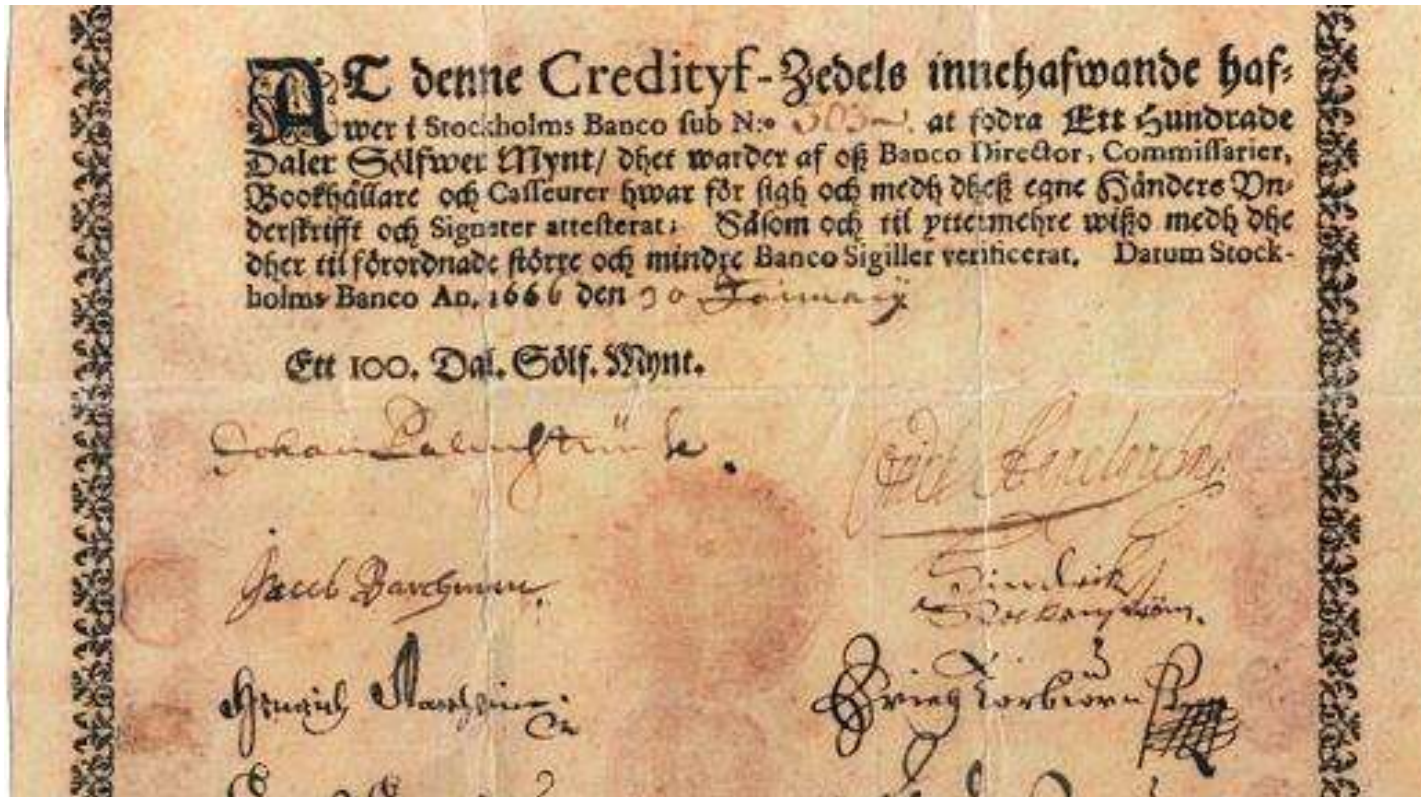 AT denne Credityf-Zedels innehafwande haf-
wer i Stockholms Banco sub N:o at fodra Ett Hundrade
Daler Sölfwer Mynt/ dhet warder af oß Banco Director, Commissarier,
Bookhällare och Casseurer hwar för sigh och medh dheß egne Händers Vn-
derskrifft och Signeter attesterat; Såsom och til yttermehre wißo medh dhe
dher til förordnade större och mindre Banco Sigiller verificerat. Datum Stock-
holms Banco An. 1666 den 30 January
Ett 100. Dal. Sölf. Mynt.
Johan Palmstruch.
Jacob Barchman.
Hindrik
Hinrich
Torbiörn